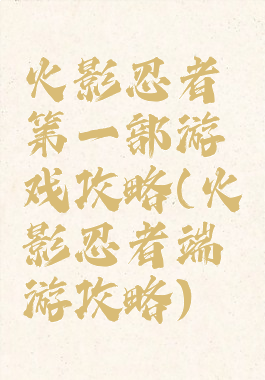 火影忍者
第一部游
戏攻略(火
影忍者端
游攻略)